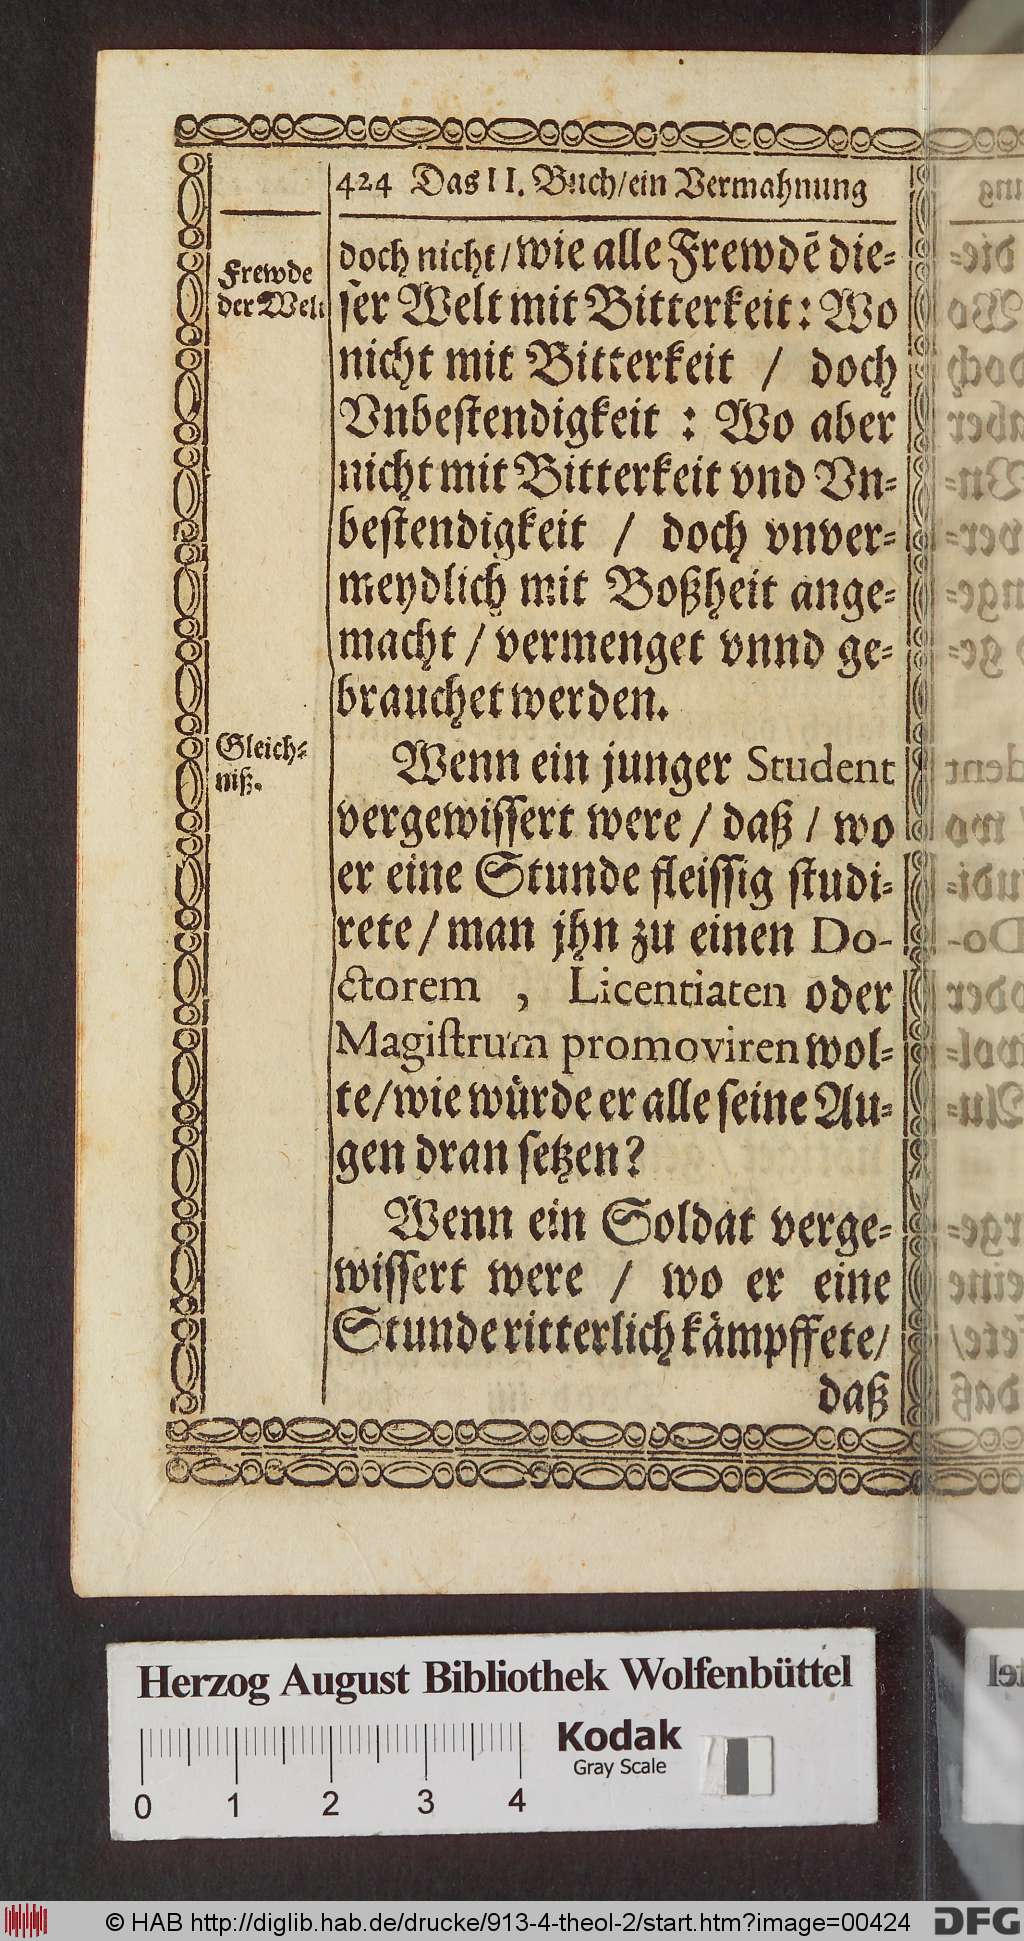 424 Das II. Buch/ein Vermahnung
Frewde
der Welt
doch nicht/wie alle Frewdẽ die⸗
ser Welt mit Bitterkeit: Wo
nicht mit Bitterkeit / doch
Vnbestendigkeit : Wo aber
nicht mit Bitterkeit vnd Vn⸗
bestendigkeit / doch vnver⸗
meydlich mit Boßheit ange⸗
macht / vermenget vnnd ge⸗
brauchet werden.
Gleich⸗
niß.
Wenn ein junger Student
vergewissert were / daß / wo
er eine Stunde fleissig studi⸗
rete / man jhn zu einen Do-
ctorem , Licentiaten oder
Magistrum promoviren wol⸗
te/wie würde er alle seine Au⸗
gen dran setzen?
Wenn ein Soldat verge⸗
wissert were / wo er eine
Stunde ritterlich kämpffete/
daß
Herzog August Bibliothek Wolfenbüttel
Kodak
Gray Scale
0 1 2 3 4
© HAB http://diglib.hab.de/drucke/913-4-theol-2/start.htm?image=00424
DFG